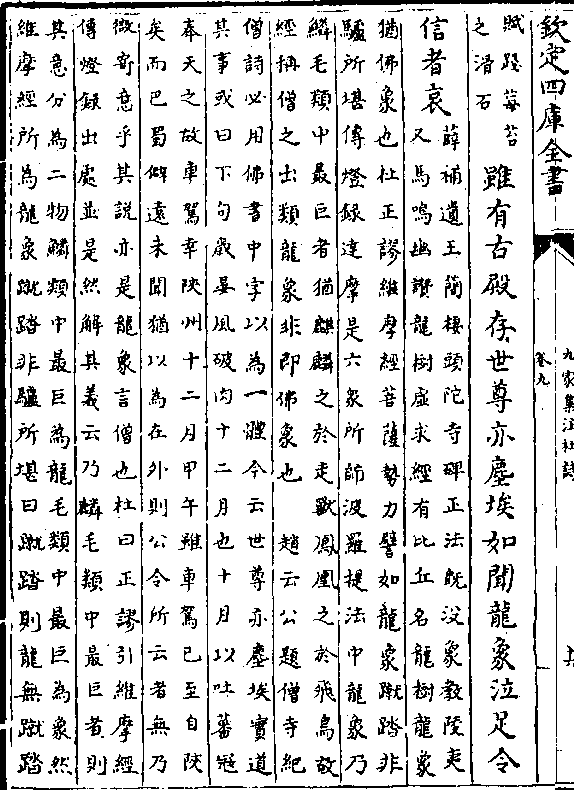 欽定四庫全書
九家集注杜詩
卷九
賦踐莓苔
之滑石
雖有古殿存世尊亦塵埃如聞龍象泣足令
信者哀
薛補遺王簡棲頭陀寺碑正法既没象教陵夷
又馬鳴幽讚龍樹虚求經有比丘名龍樹龍象
猶佛象也杜正謬維摩經菩薩勢力譬如龍象蹴踏非
驢所堪傳燈録達摩是六象所師波羅提法中龍象乃
鱗毛類中最巨者猶麒麟之於走獸鳳凰之於飛鳥故
經稱僧之出類龍象非即佛象也 趙云公題僧寺紀
僧詩必用佛書中字以為一體今云世尊亦塵埃實道
其事或曰下句歲晏風破肉十二月也十月以吐蕃冦
奉天之故車駕幸陜州十二月甲午雖車駕已至自陜
矣而巴蜀僻遠未聞猶以為在外則公今所云者無乃
微寄意乎其説亦是龍象言僧也杜曰正謬引維摩經
傳燈録出處並是然解其義云乃麟毛類中最巨者則
其意分為二物鱗類中最巨為龍毛類中最巨為象然
維摩經所為龍象蹴踏非驢所堪曰蹴踏則龍無蹴踏